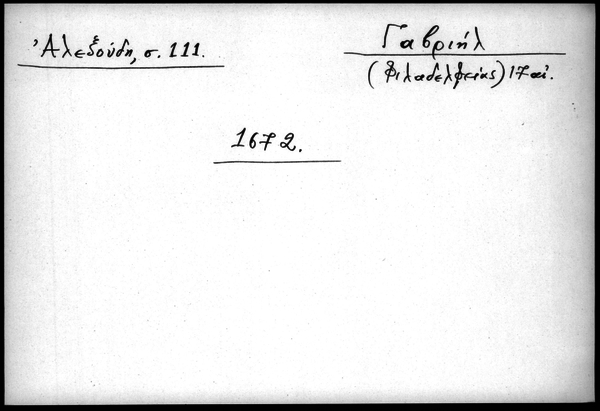 Ἀλεξούδη, σ. 111.
Γαβριήλ
(Φιλαδελφείας) 17 αἰ.
1672.